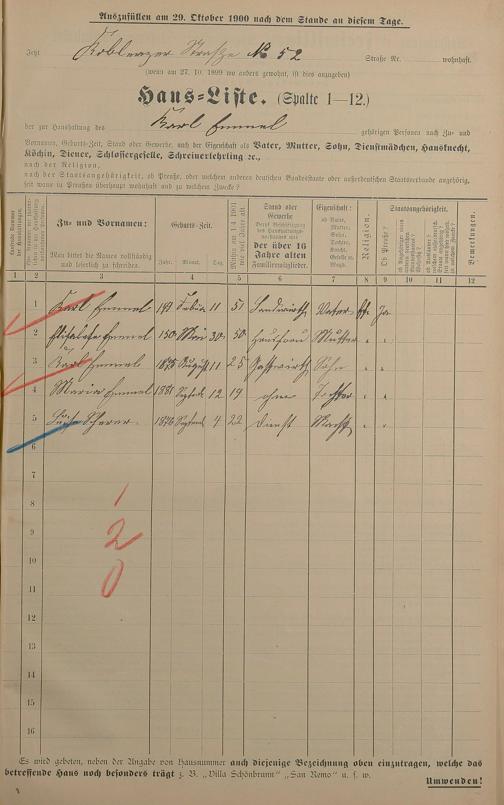 Auszufüllen am 29. Oktober 1900 nach dem Stande an diesem Tage.
Jetzt Koblenzer Straße No 52 Straße Nr. wohnhaft.
(wenn am 27. 10. 1899 wo anders gewohnt, ist dies anzugeben)
Haus=Liste. (Spalte 1—12.)
der zur Haushaltung des Karl Emmel gehörigen Personen nach Zu- und
Vornamen, Geburts-Zeit, Stand oder Gewerbe, nach der Eigenschaft als Vater, Mutter, Sohn, Dienstmädchen, Hausknecht,
Köchin, Diener, Schlossergeselle, Schreinerlehrling 2c.,
nach der Religion,
nach der Staatsangehörigkeit, ob Preuße, oder welchem anderen deutschen Bundesstaate oder außerdeutschen Staatsverbande angehörig,
seit wann in Preußen überhaupt wohnhaft und zu welchem Zwecke?
Zu- und Vornamen:
Man bittet die Namen vollständig und leserlich zu schreiben.
Geburts-Zeit.
Jahr. Monat. Tag.
Stand oder Gewerbe
der über 16 Jahre alten Familienmitglieder.
Eigenschaft:
ob Vater, Mutter, Sohn, Tochter, Knecht, Geselle u. Magd.
Religion.
Staatsangehörigkeit.
Ob Preuße?
Bemerkungen.
1 2 3 4 5 6 7 8 9 10 11 12
1 Karl Emmel 11 51 Landwirth Vater Ja
2 Elisabeth Emmel 150 Mai 30 50 Hausfrau Mutter " "
3 Karl Emmel 1875 August 11 25 Gastwirth Sohn " "
4 Maria Emmel 1881 Septemb 12 19 ohne Tochter " "
5 Scherer 1878 Septemb 4 22 Dienst Magd " "
6
7
8
9
10
11
12
13
14
15
16
1
2
0
Es wird gebeten, neben der Angabe von Hausnummer auch diejenige Bezeichnung oben einzutragen, welche das
betreffende Haus noch besonders trägt z. B. „Villa Schönbrunn" „San Remo" u. s. w.
Umwenden!